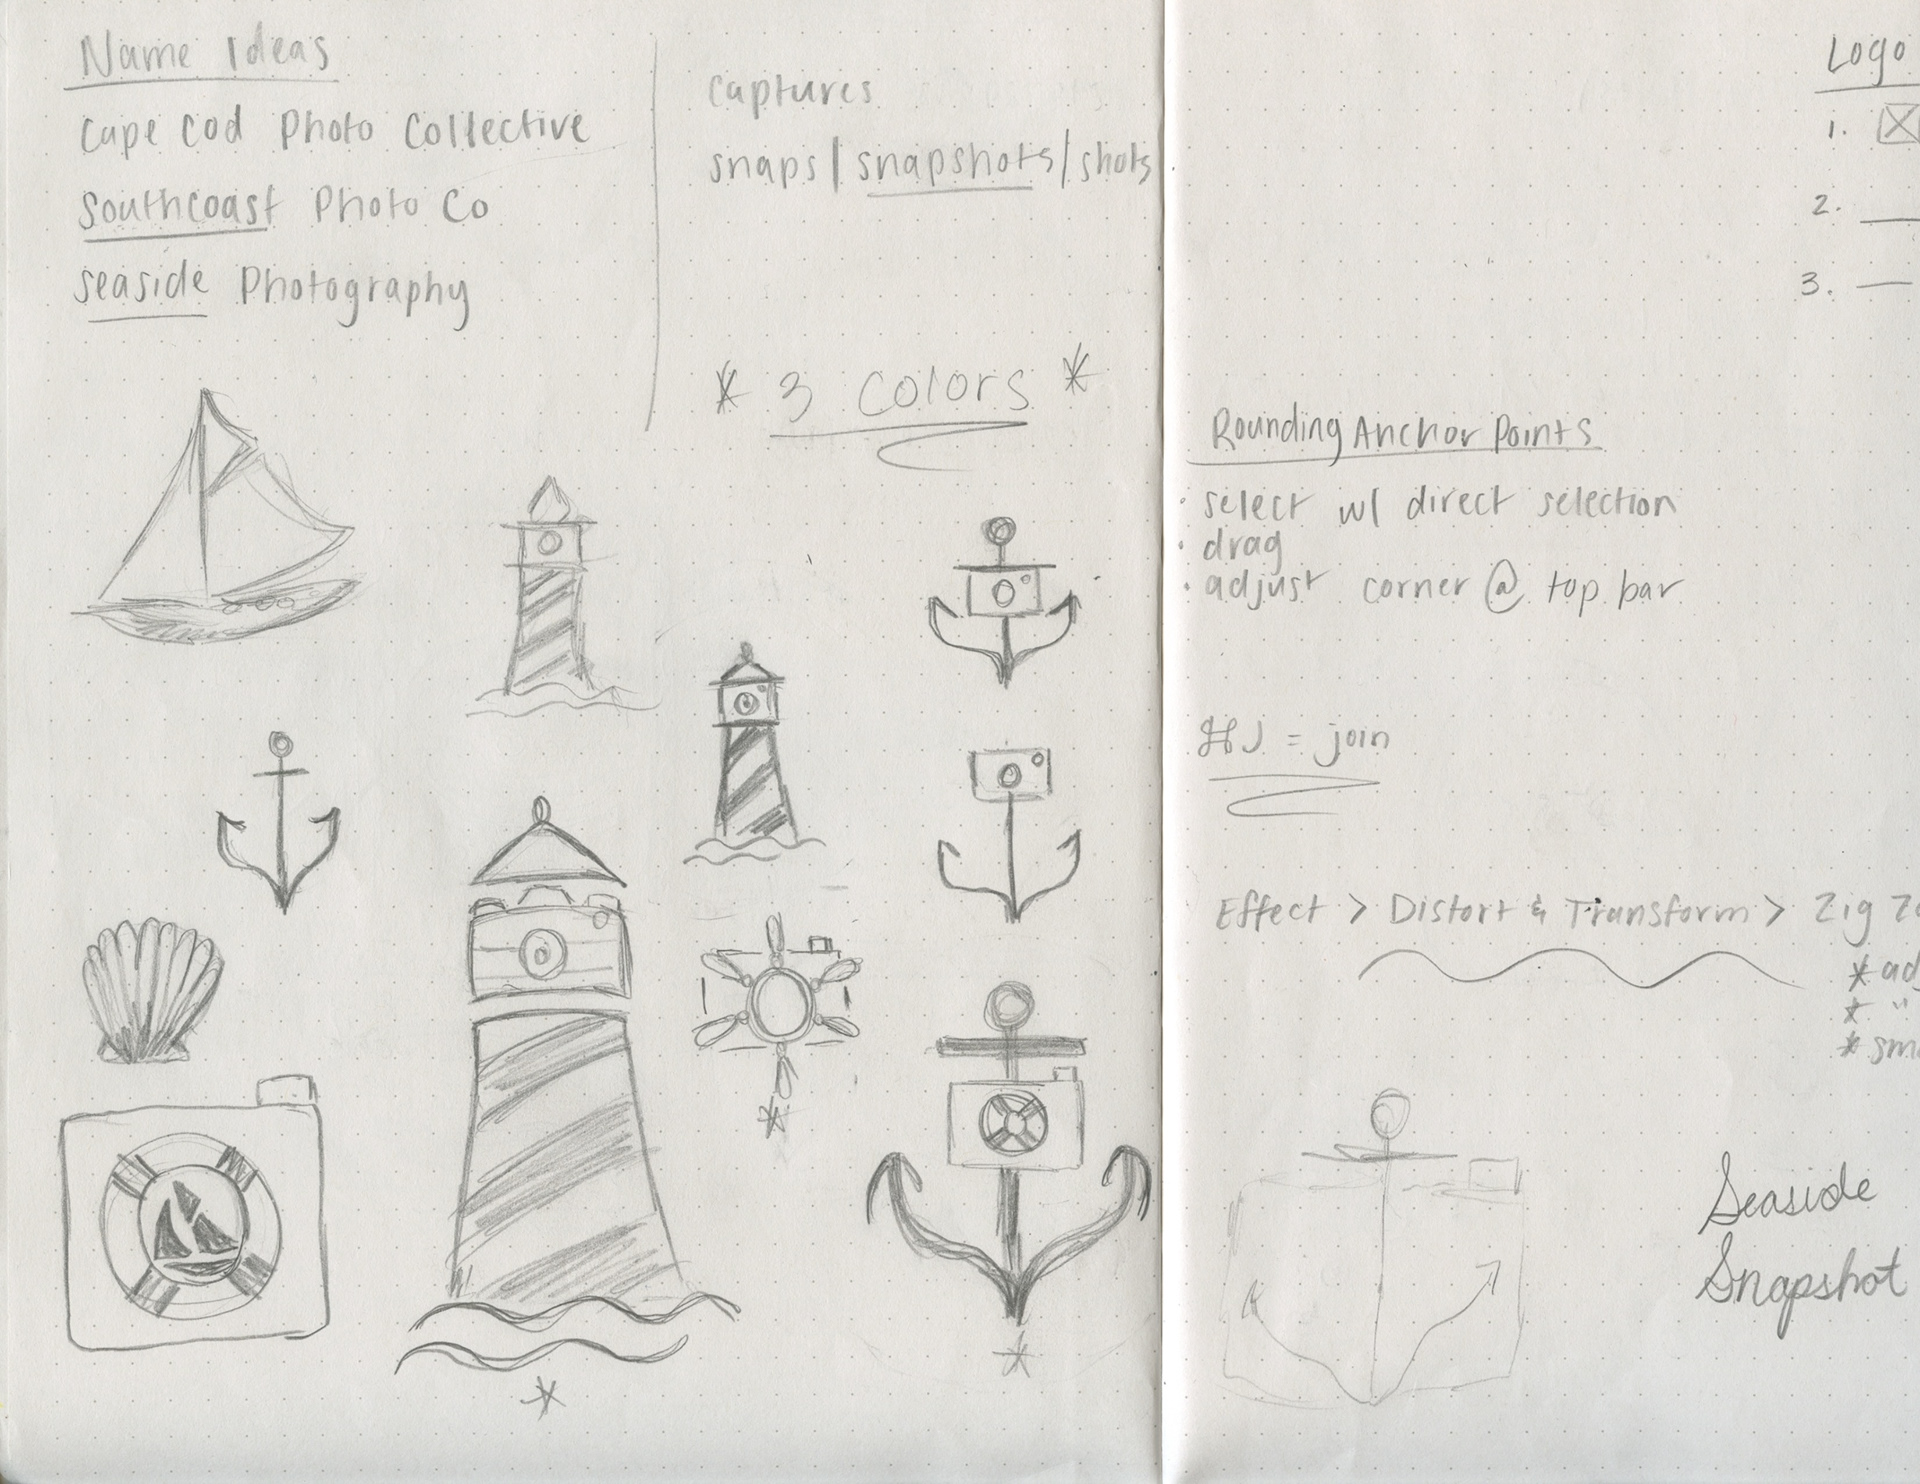 Name Ideas
Cape Cod Photo Collective
Southcoast Photo Co
Seaside Photography
captures
snaps/snapshots/shots
* 3 colors *
Logo
1.
2.
3.
Rounding Anchor Points
· select w/ direct selection
· drag
· adjust corner @ top bar
⌘J = join
Effect > Distort & Transform > Zig
*
* "
*
Seaside
Snapshot